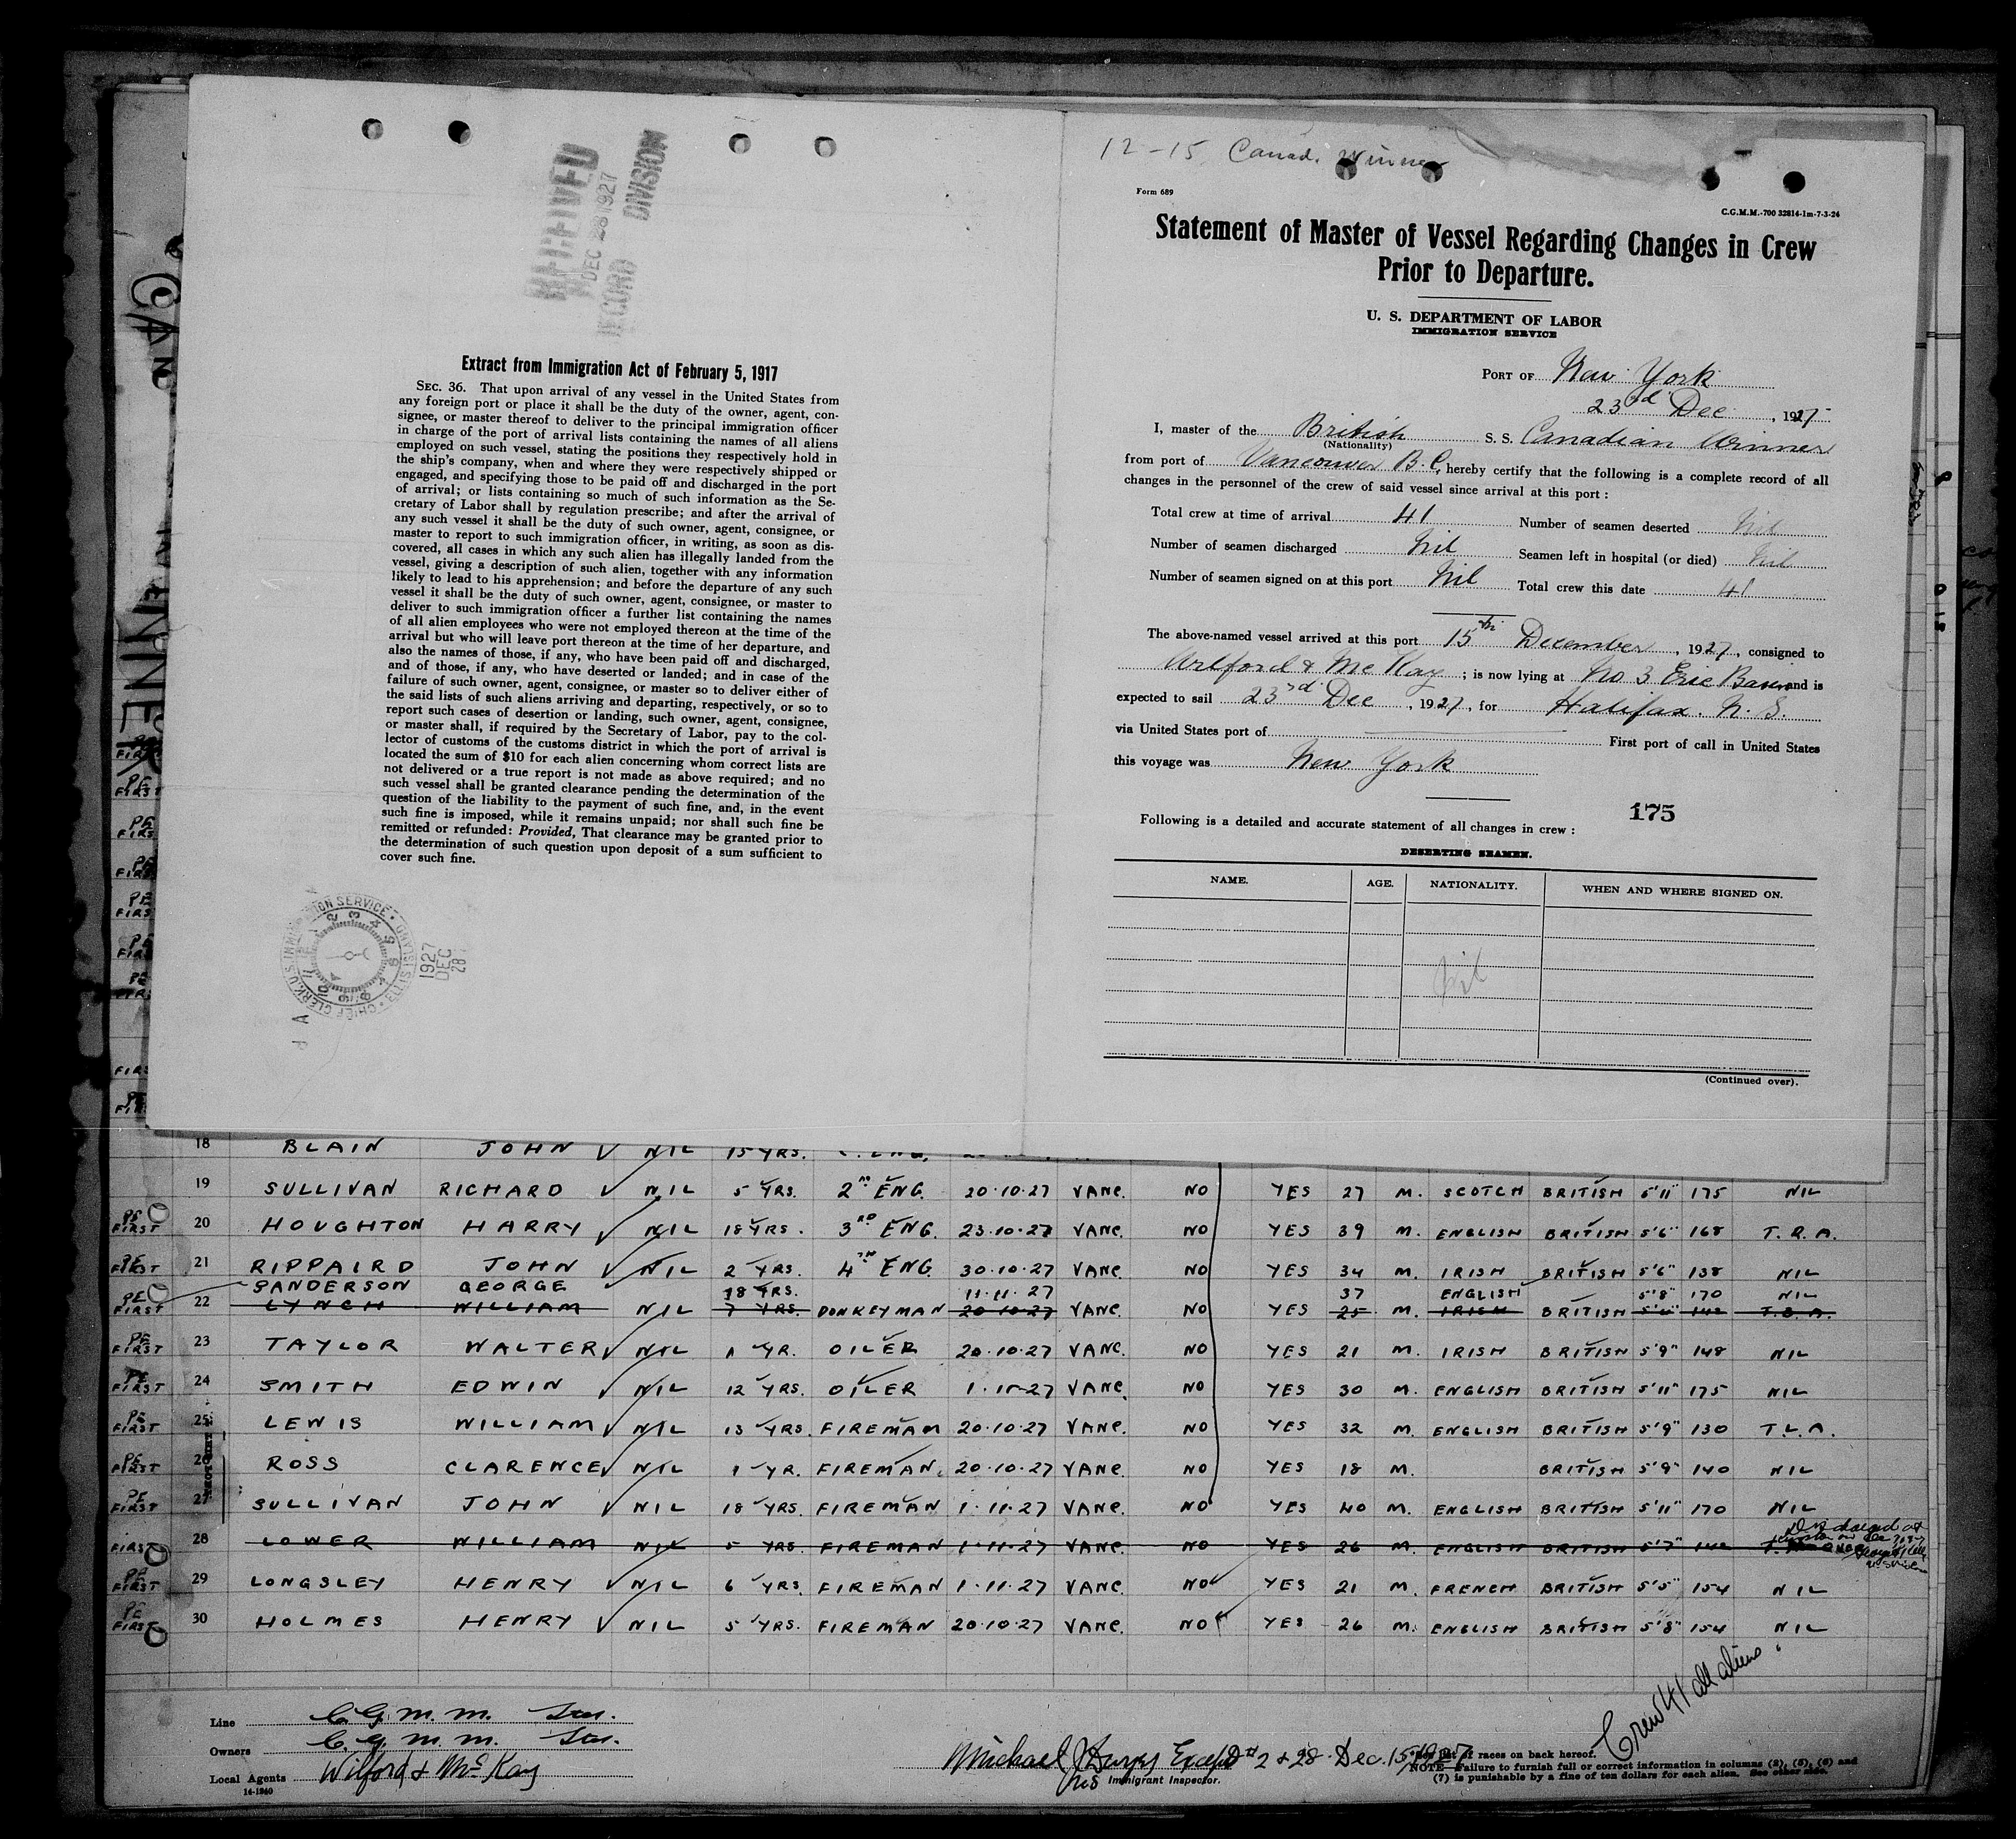 RECEIVED
DEC 28 1927
RECORD DIVISION
Extract from Immigration Act of February 5, 1917
SEC. 36. That upon arrival of any vessel in the United States from
any foreign port or place it shall be the duty of the owner, agent, con-
signee, or master thereof to deliver to the principal immigration officer
in charge of the port of arrival lists containing the names of all aliens
employed on such vessel, stating the positions they respectively hold in
the ship's company, when and where they were respectively shipped or
engaged, and specifying those to be paid off and discharged in the port
of arrival; or lists containing so much of such information as the Se-
cretary of Labor shall by regulation prescribe; and after the arrival of
any such vessel it shall be the duty of such owner, agent, consignee, or
master to report to such immigration officer, in writing, as soon as dis-
covered, all cases in which any such alien has illegally landed from the
vessel, giving a description of such alien, together with any information
likely to lead to his apprehension; and before the departure of any such
vessel it shall be the duty of such owner, agent, consignee, or master to
deliver to such immigration officer a further list containing the names
of all alien employees who were not employed thereon at the time of the
arrival but who will leave port thereon at the time of her departure, and
also the names of those, if any, who have been paid off and discharged,
and of those, if any, who have deserted or landed; and in case of the
failure of such owner, agent, consignee, or master so to deliver either of
the said lists of such aliens arriving and departing, respectively, or so to
report such cases of desertion or landing, such owner, agent, consignee,
or master shall, if required by the Secretary of Labor, pay to the col-
lector of customs of the customs district in which the port of arrival is
located the sum of $10 for each alien concerning whom correct lists are
not delivered or a true report is not made as above required; and no
such vessel shall be granted clearance pending the determination of the
question of the liability to the payment of such fine, and, in the event
such fine is imposed, while it remains unpaid; nor shall such fine be
remitted or refunded: Provided, That clearance may be granted prior to
the determination of such question upon deposit of a sum sufficient to
cover such fine.
1927 DEC 28
12-15 Canad. Winner
Form 689
C.G.M.M.-700 32814-1m-7-3-24
Statement of Master of Vessel Regarding Changes in Crew
Prior to Departure.
U. S. DEPARTMENT OF LABOR
IMMIGRATION SERVICE
PORT OF New York
23rd Dec, 1927
I, master of the British S. S. Canadian Winner
(Nationality)
from port of Vancouver B.C. hereby certify that the following is a complete record of all
changes in the personnel of the crew of said vessel since arrival at this port :
Total crew at time of arrival 41 Number of seamen deserted Nil
Number of seamen discharged Nil Seamen left in hospital (or died) Nil
Number of seamen signed on at this port Nil Total crew this date 41
The above-named vessel arrived at this port 15th December, 1927, consigned to
Wilford & McKay ; is now lying at No 3 Erie Basin and is
expected to sail 23rd Dec, 1927, for Halifax. N. S.
via United States port of First port of call in United States
this voyage was New York
175
Following is a detailed and accurate statement of all changes in crew :
DESERTING SEAMEN.
NAME. AGE. NATIONALITY. WHEN AND WHERE SIGNED ON.
Nil
(Continued over).
18 BLAIN JOHN NIL 15 YRS.
19 SULLIVAN RICHARD NIL 5 YRS. 2ND ENG. 20.10.27 VANC. NO YES 27 M. SCOTCH BRITISH 5'11" 175 NIL
PE FIRST 20 HOUGHTON HARRY NIL 18 YRS. 3RD ENG. 23.10.27 VANC. NO YES 39 M. ENGLISH BRITISH 5'6" 168 T.R.A.
PE FIRST 21 RIPPAIRD JOHN NIL 2 YRS. 4TH ENG. 30.10.27 VANC. NO YES 34 M. IRISH BRITISH 5'6" 138 NIL
SANDERSON GEORGE 18 YRS. 11.11.27 37 ENGLISH 5'8" 170 NIL
PE FIRST 22 LYNCH WILLIAM NIL 7 YRS. DONKEYMAN 20.10.27 VANC. NO YES 25 M. IRISH BRITISH
PE FIRST 23 TAYLOR WALTER NIL 1 YR. OILER 20.10.27 VANC. NO YES 21 M. IRISH BRITISH 5'9" 148 NIL
PE FIRST 24 SMITH EDWIN NIL 12 YRS. OILER VANC. NO YES 30 M. ENGLISH BRITISH 5'11" 175 NIL
PE FIRST 25 LEWIS WILLIAM NIL 13 YRS. FIREMAN 20.10.27 VANC. NO YES 32 M. ENGLISH BRITISH 5'9" 130 T.L.A.
PE FIRST 26 ROSS CLARENCE NIL 1 YR. FIREMAN. 20.10.27 VANC. NO YES 18 M. BRITISH 5'9" 140 NIL
PE FIRST 27 SULLIVAN JOHN NIL 18 YRS. FIREMAN 1.11.27 VANC. NO YES 40 M. ENGLISH BRITISH 5'11" 170 NIL
FIRST 28 LOWER WILLIAM NIL 5 YRS. FIREMAN 1.11.27 VANC. NO YES 26 M. ENGLISH BRITISH 5'7" Discharged at
PE FIRST 29 LONGSLEY HENRY NIL 6 YRS. FIREMAN 1.11.27 VANC. NO YES 21 M. FRENCH BRITISH 5'5" 154 NIL
PE FIRST 30 HOLMES HENRY NIL 5 YRS. FIREMAN 20.10.27 VANC. NO YES 26 M. ENGLISH BRITISH 5'8" 154 NIL
Crew 41 all aliens
Line C. G. M. M.
Owners C. G. M. M.
Local Agents Wilford & McKay
14-1240
Michael Except # 2 & 28 Dec. 15/1927
Immigrant Inspector.
*See list of races on back hereof.
NOTE—Failure to furnish full or correct information in columns (2), (5), (6) and
(7) is punishable by a fine of ten dollars for each alien. See other side.